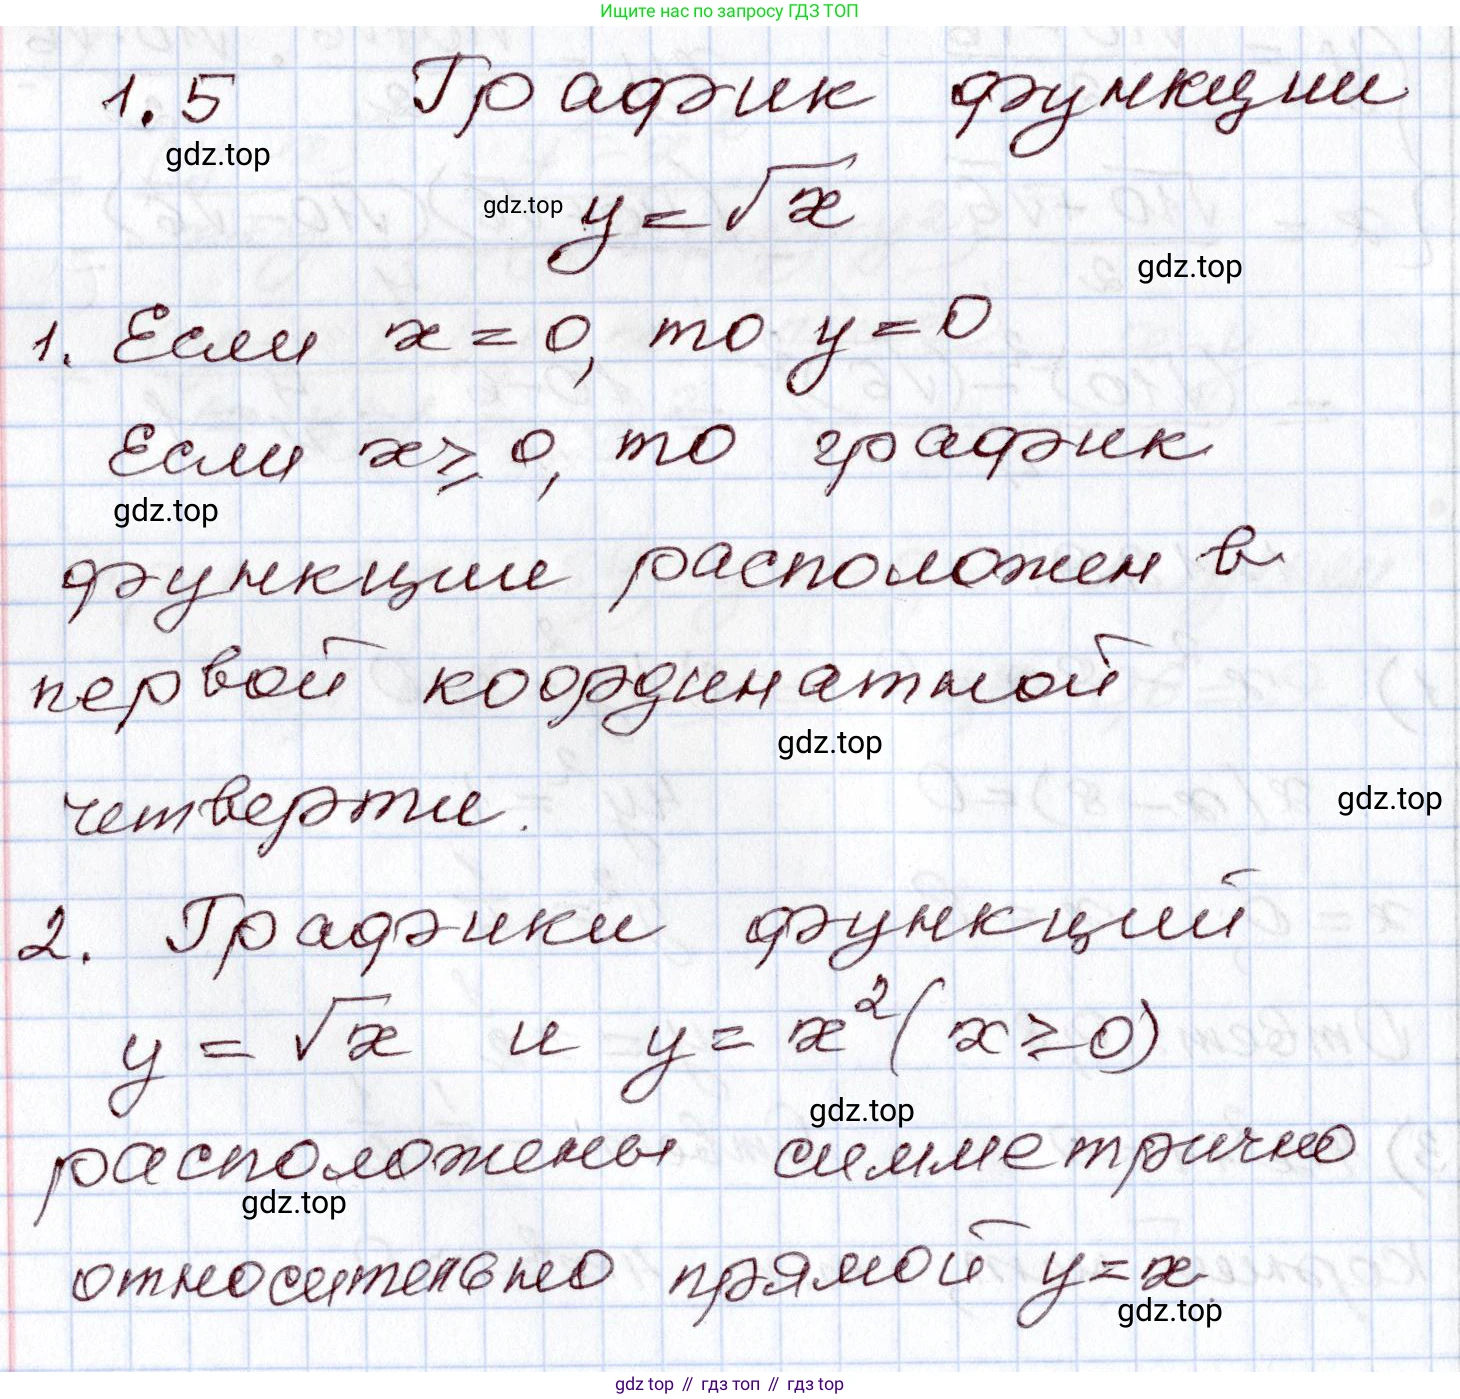 Ищите нас по запросу ГДЗ ТОП
1.5 График функции
gdz.top
gdz.top y = √x
gdz.top
1. Если x = 0, то y = 0
Если x ⩾ 0, то график
gdz.top
функции расположен в
первой координатной
gdz.top
четверти.
gdz.top
2. Графики функций
y = √x и y = x² (x ⩾ 0)
gdz.top
расположены симметрично
gdz.top
относительно прямой y = x.
gdz.top
gdz top // гдз топ // гдз top